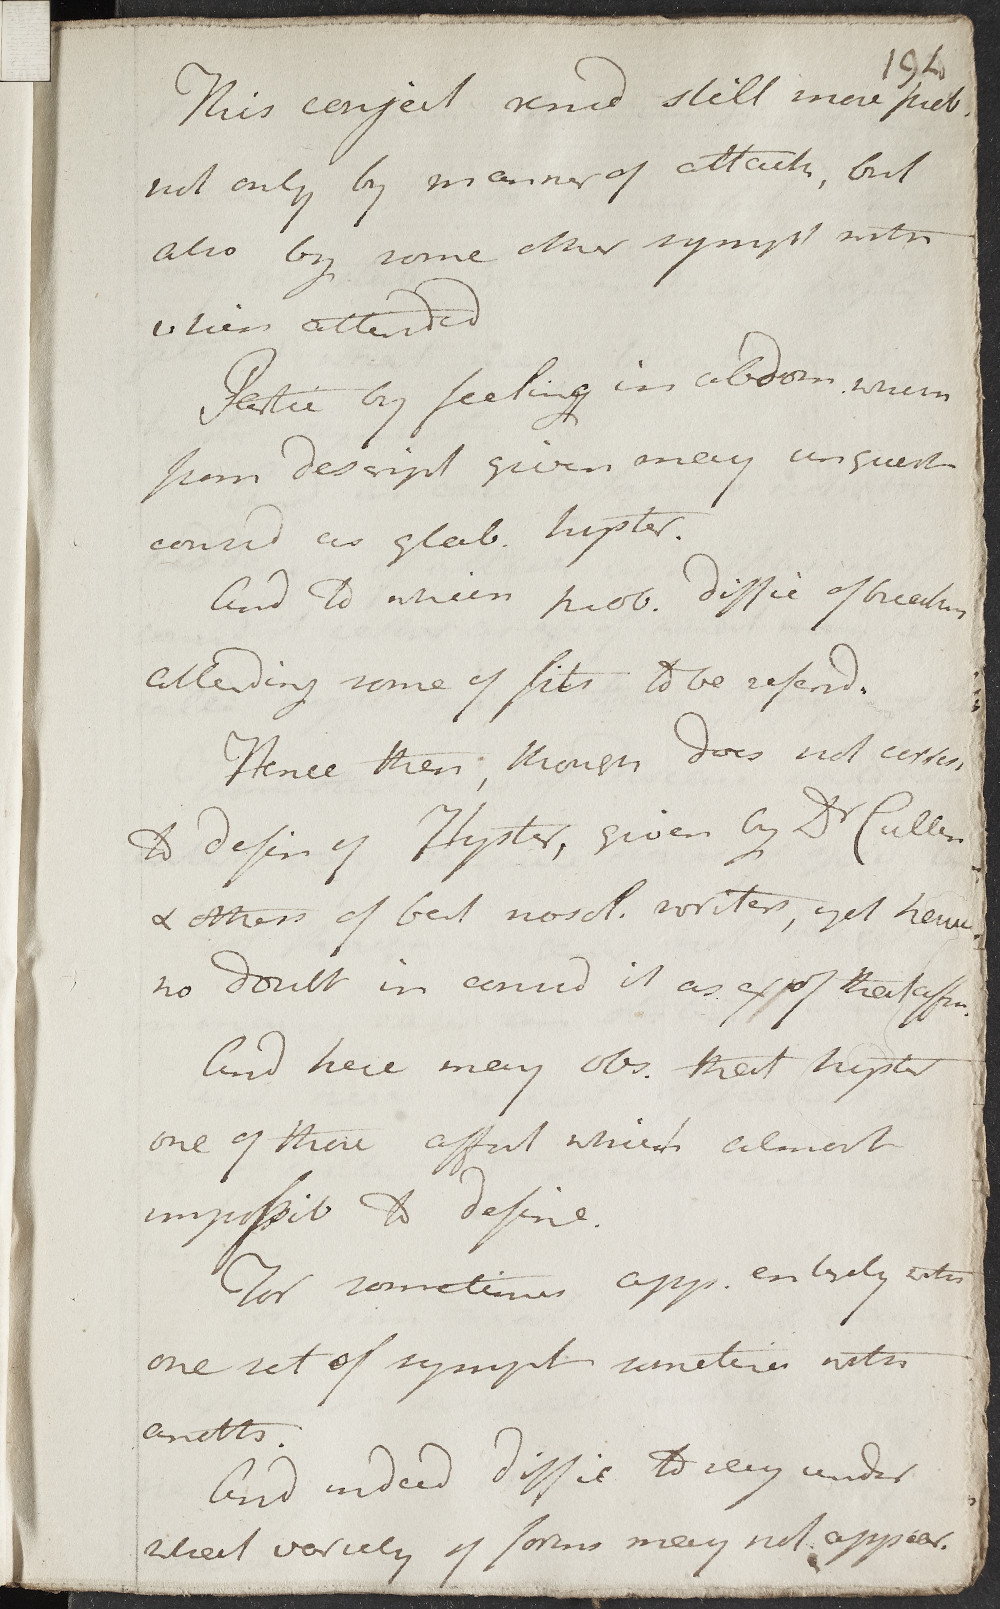 194
This conject rend still more prob.
not only by manner of attack, but
also by some other sympt with
which attended
Partic by feeling in abdom. which
from descript given may unquest
consid as glob. hyster.
And to which prob. diffic of breathing
attending some of fits to be referd.
Hence then, though does not corresp
to defin of Hyster, given by Dr Cullen
& others of best nosol. writers, yet have
no doubt in consid it as ex of that affn.
And here may obs. that hyster
one of those affect which almost
impossib to define.
For sometimes app. entirely with
one set of sympt sometimes with
anoth.
And indeed diffic to say under
what variety of forms may not appear.